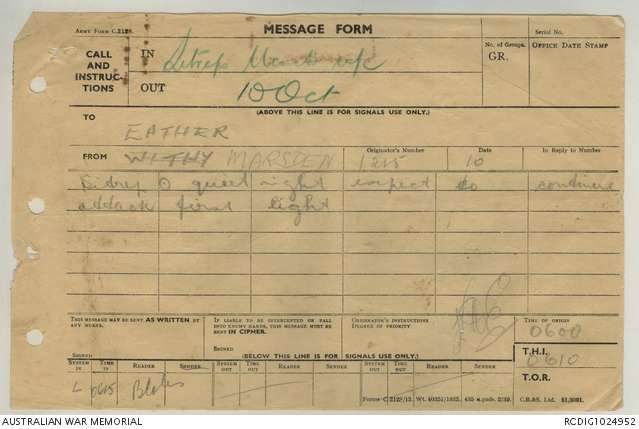 ARMY FORM C.2128.
MESSAGE FORM
Serial No.
CALL AND INSTRUCTIONS
IN
OUT
10 Oct
No. of Groups. GR.
OFFICE DATE STAMP
(ABOVE THIS LINE IS FOR SIGNALS USE ONLY.)
TO
EATHER
FROM WITHY MARSDEN
Originator's Number 1215
Date 10
In Reply to Number
Sitrep O quiet night expect to continue
attack first light
THIS MESSAGE MAY BE SENT AS WRITTEN BY ANY MEANS.
SIGNED
IF LIABLE TO BE INTERCEPTED OR FALL INTO ENEMY HANDS, THIS MESSAGE MUST BE SENT IN CIPHER.
SIGNED
ORIGINATOR'S INSTRUCTIONS DEGREE OF PRIORITY
TIME OF ORIGIN
0600
(BELOW THIS LINE IS FOR SIGNALS USE ONLY.)
T.H.I.
0610
T.O.R.
SYSTEM IN TIME IN READER SENDER SYSTEM OUT TIME OUT READER SENDER SYSTEM OUT TIME OUT READER SENDER
L 0615
C.B.&S. Ltd.
AUSTRALIAN WAR MEMORIAL
RCDIG1024952